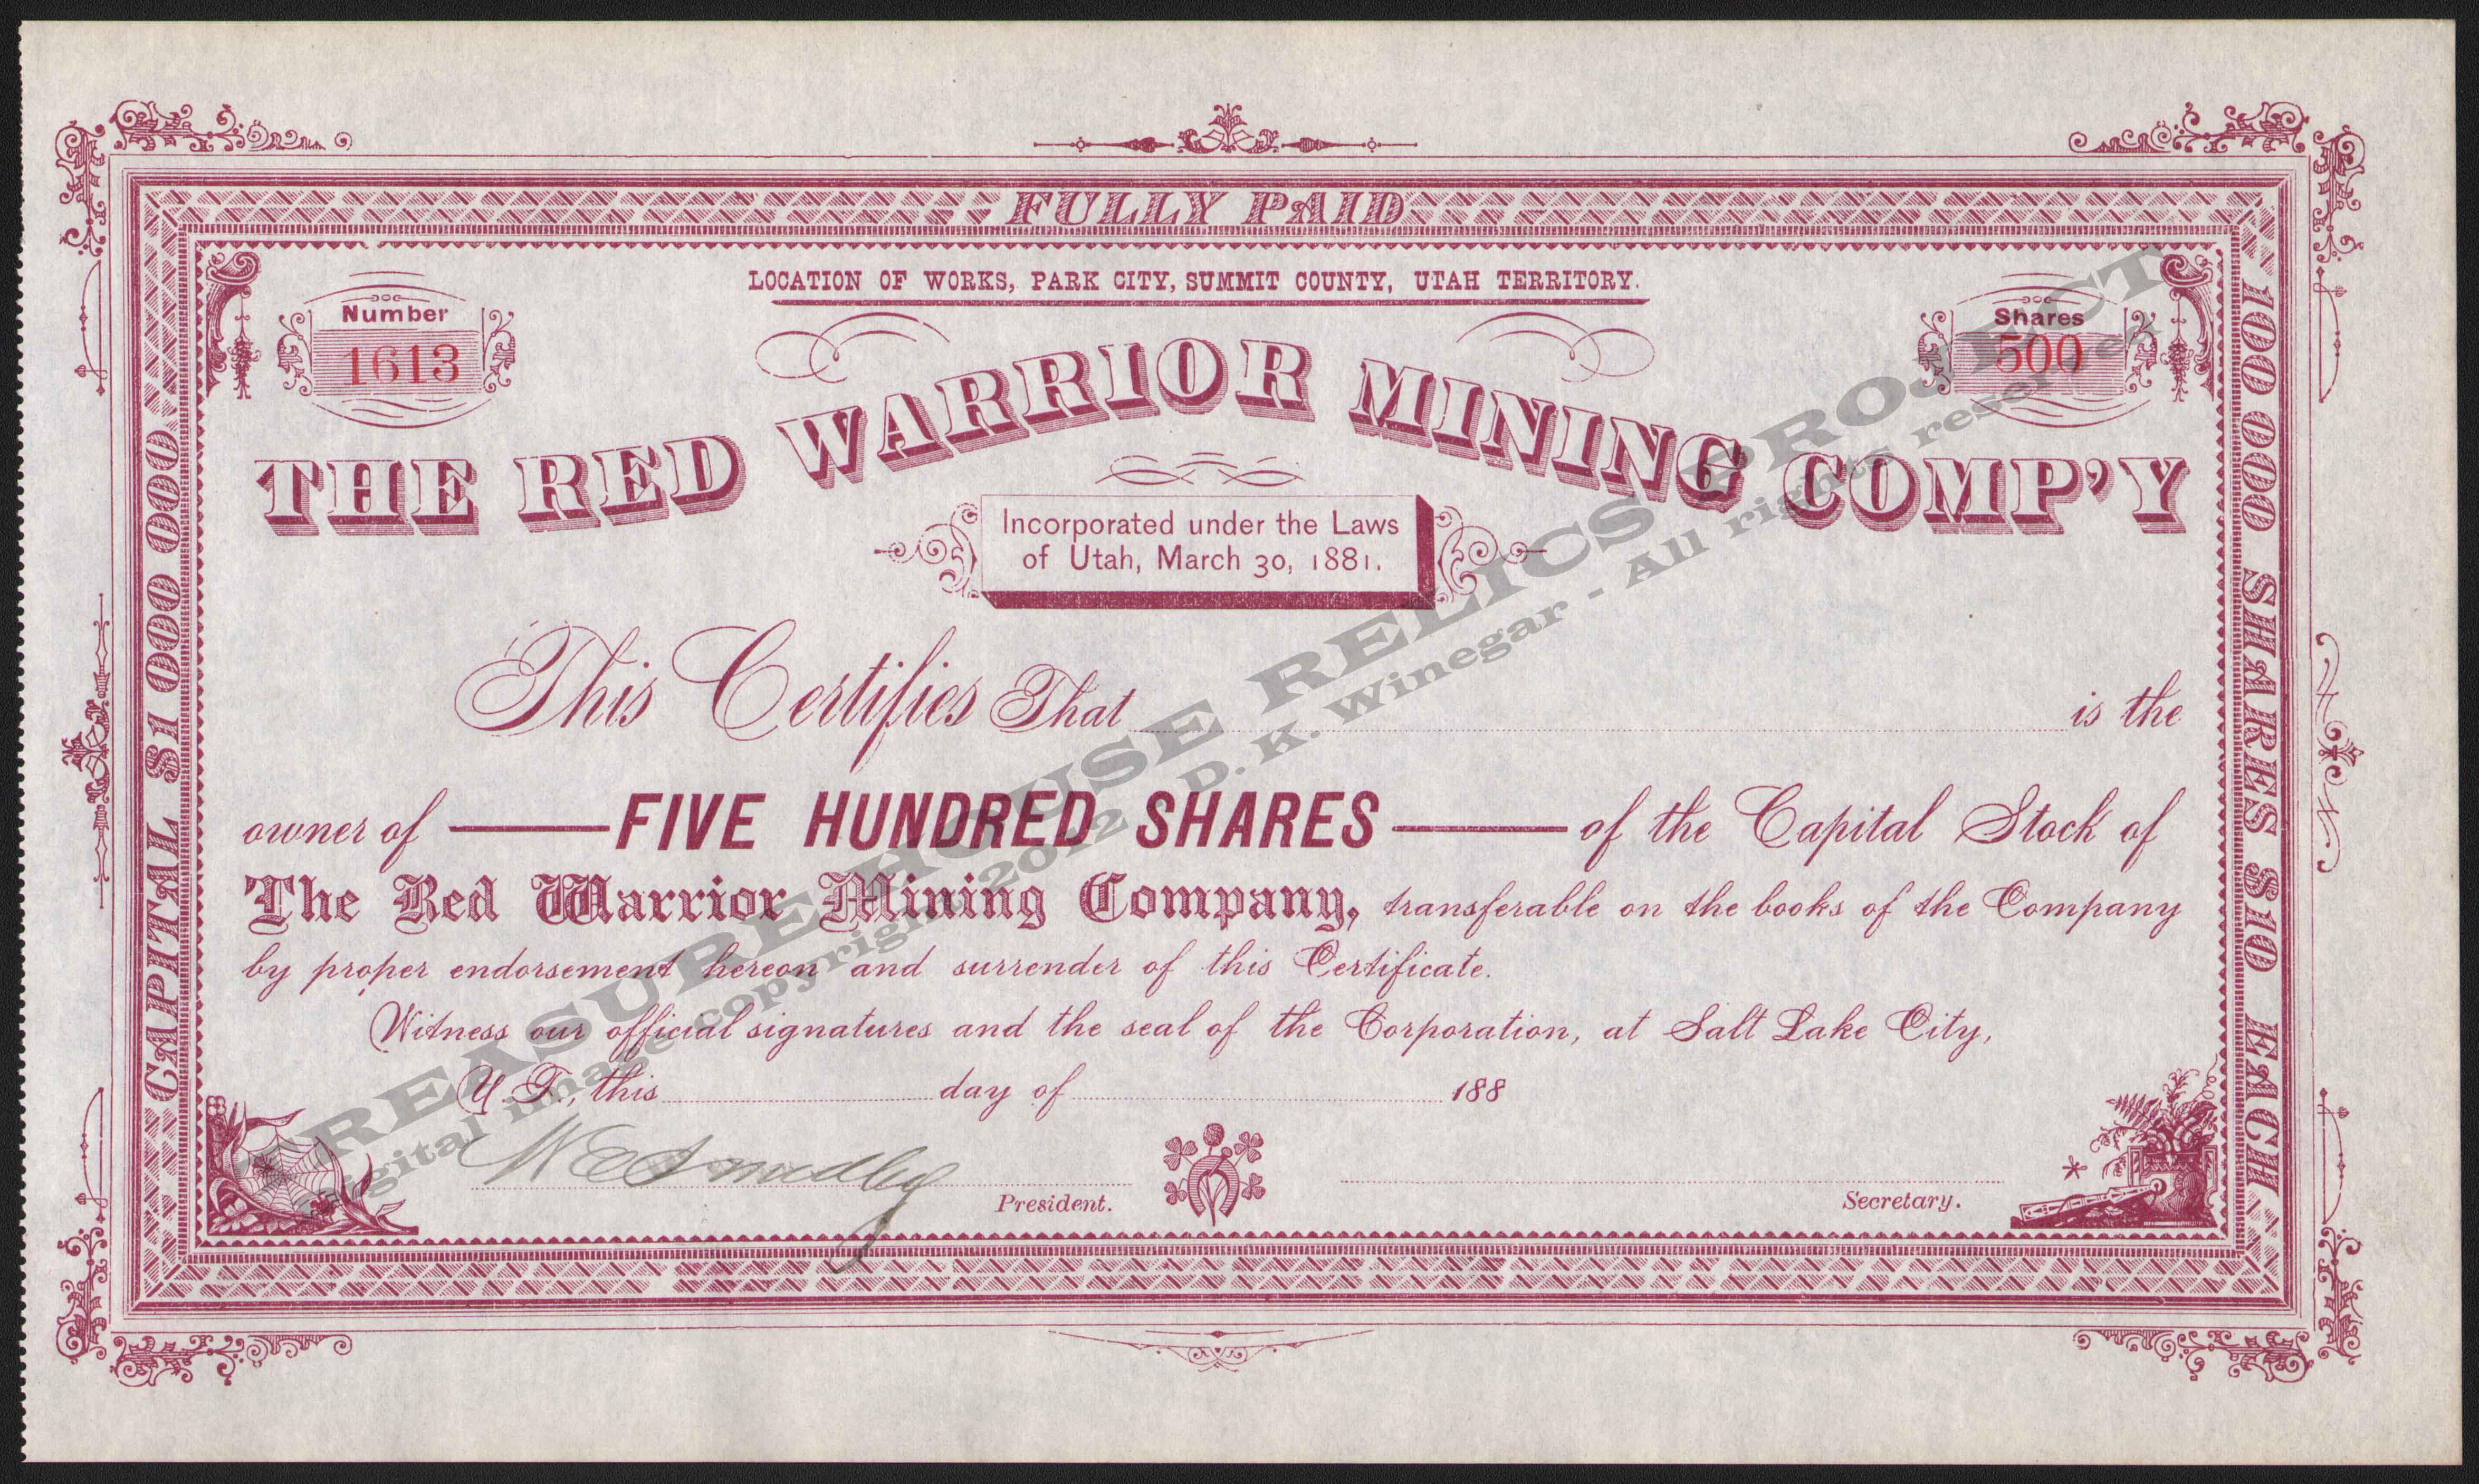 FULLY PAID
LOCATION OF WORKS, PARK CITY, SUMMIT COUNTY, UTAH TERRITORY.
Number
1613
Shares
500
THE RED WARRIOR MINING COMP'Y
Incorporated under the Laws
of Utah, March 30, 1881.
This Certifies That is the
owner of FIVE HUNDRED SHARES of the Capital Stock of
The Red Warrior Mining Company, transferable on the books of the Company
by proper endorsement hereon and surrender of this Certificate.
Witness our official signatures and the seal of the Corporation, at Salt Lake City,
U.T., this day of 188
President.
Secretary.
CAPITAL $1 000 000
100 000 SHARES $10 EACH
TREASURE HOUSE RELICS PROJECT
Digital image copyright 2012 D. K. Winegar - All rights reserved